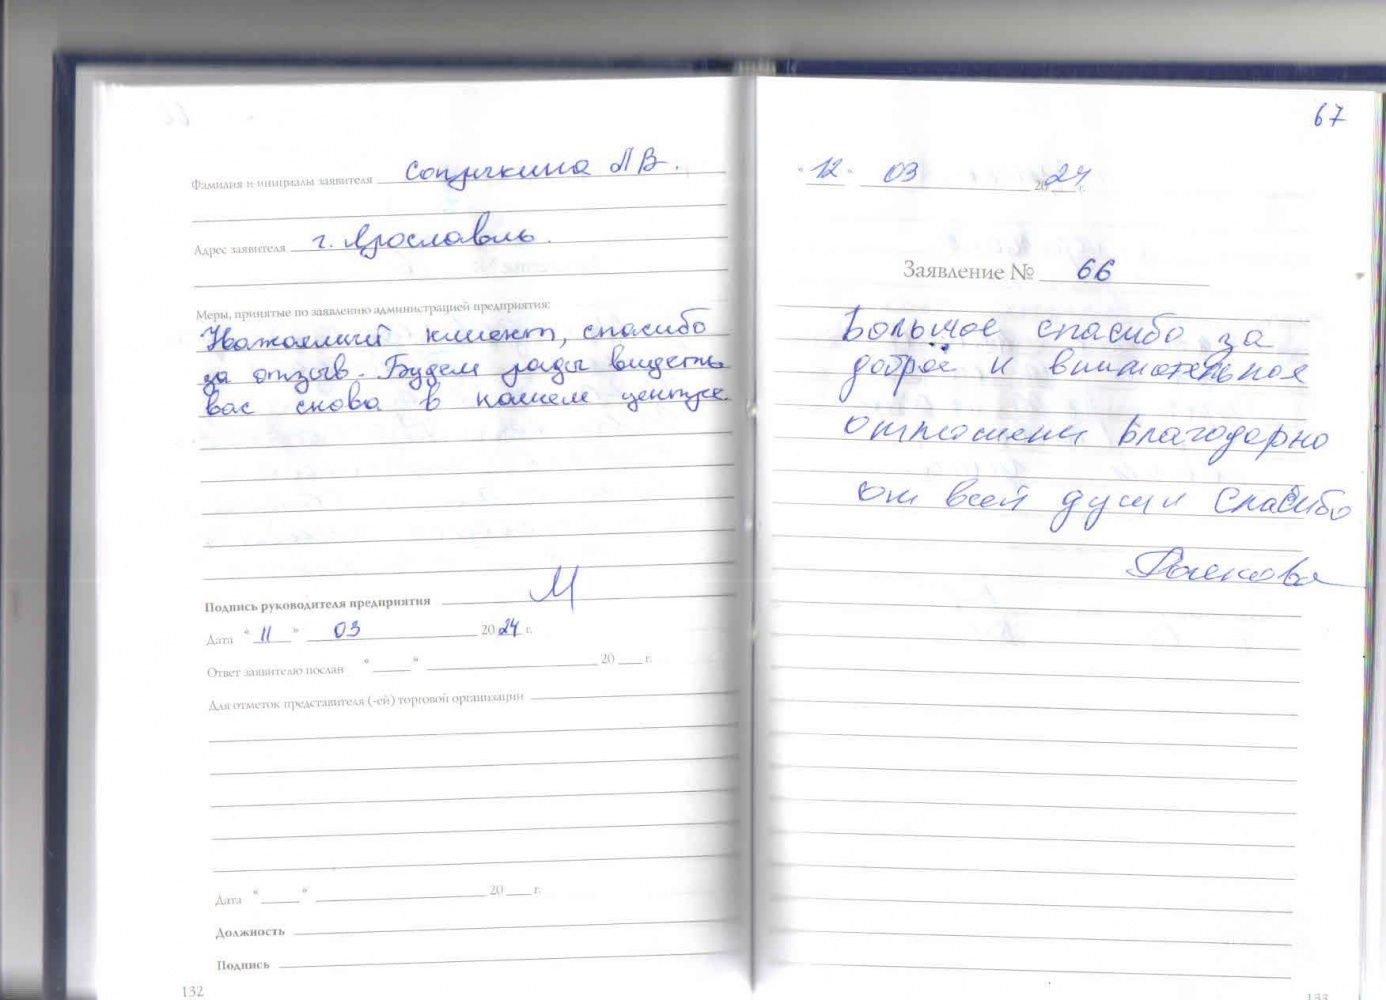 Фамилия и инициалы заявителя Сопучкина А В.
Адрес заявителя г. Ярославль.
Меры, принятые по заявлению администрацией предприятия:
Уважаемый клиент, спасибо
за отзыв. Будем рады видеть
вас снова в нашем центре.
Подпись руководителя предприятия
Дата "11" 03 2024 г.
Ответ заявителю послан " " 20 г.
Для отметок представителя (-ей) торговой организации
Дата " " 20 г.
Должность
Подпись
132
67
"12" 03 2024 г.
Заявление № 66
Большое спасибо за
доброе и внимательное
отношени Благодарно
от всей души Спасибо
133